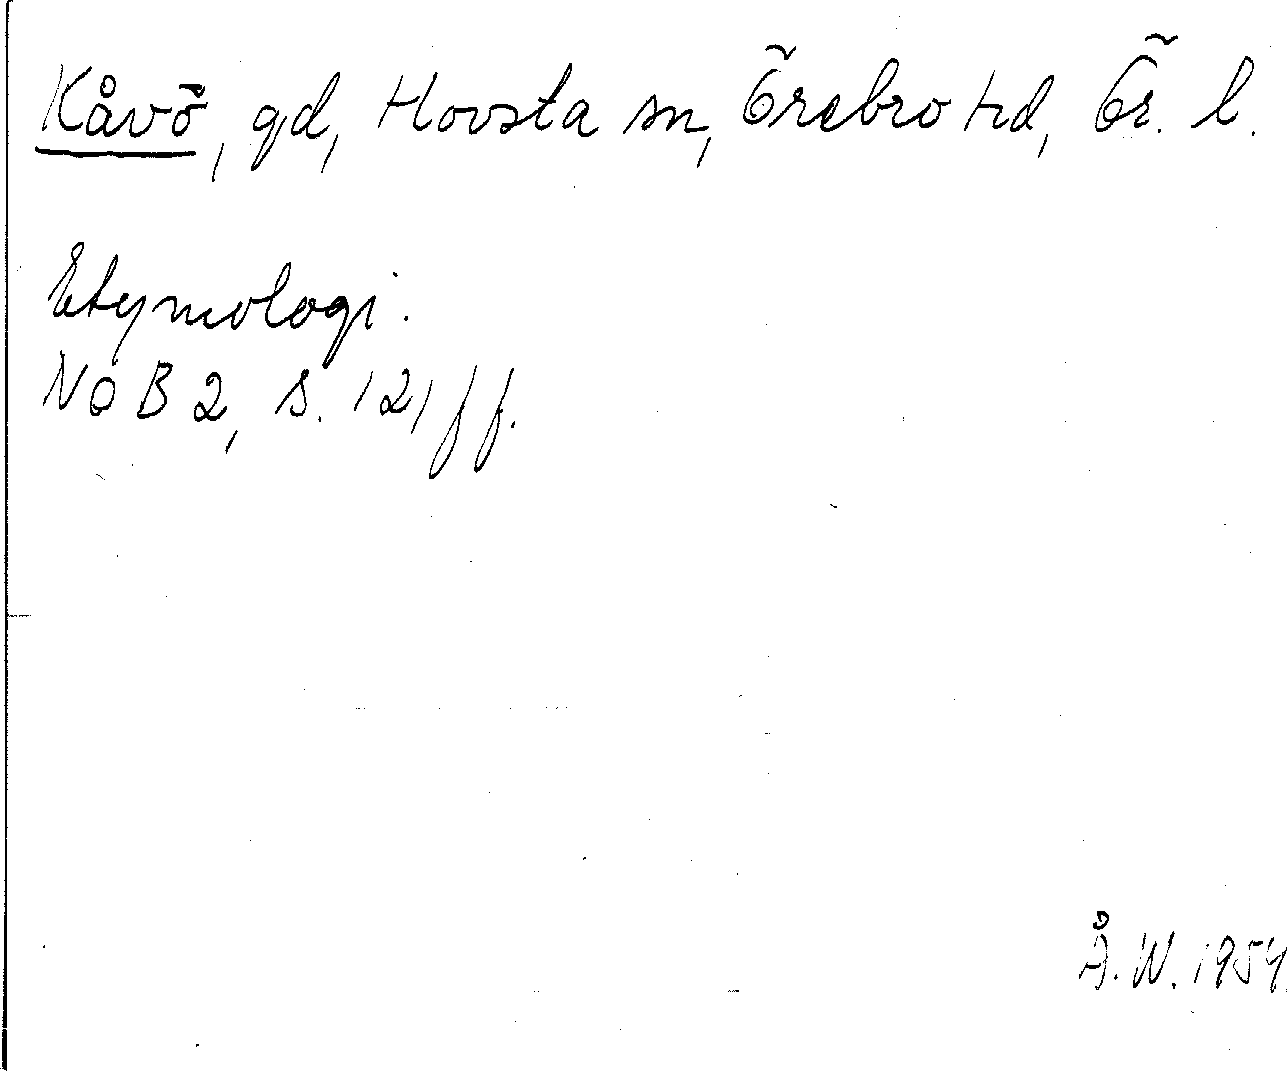 Kåvö, gd, Hovsta sn, Örebro hd, Ör. l.
Etymologi.
NoB 2, s. 121 ff.
Å. W. 1954